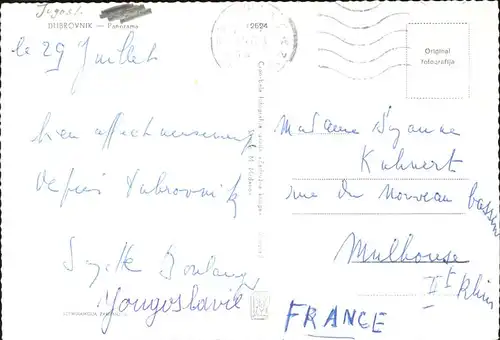 Jugosl.
DUBROVNIK — Panorama
2624
Original
fotografija
le 29 Juillet
bien affectueusement
depuis Dubrovnik
Madame Suzanne
Kuhnert
rue du Nouveau bassin
Mulhouse
Ht Rhin
Yougoslavie
FRANCE